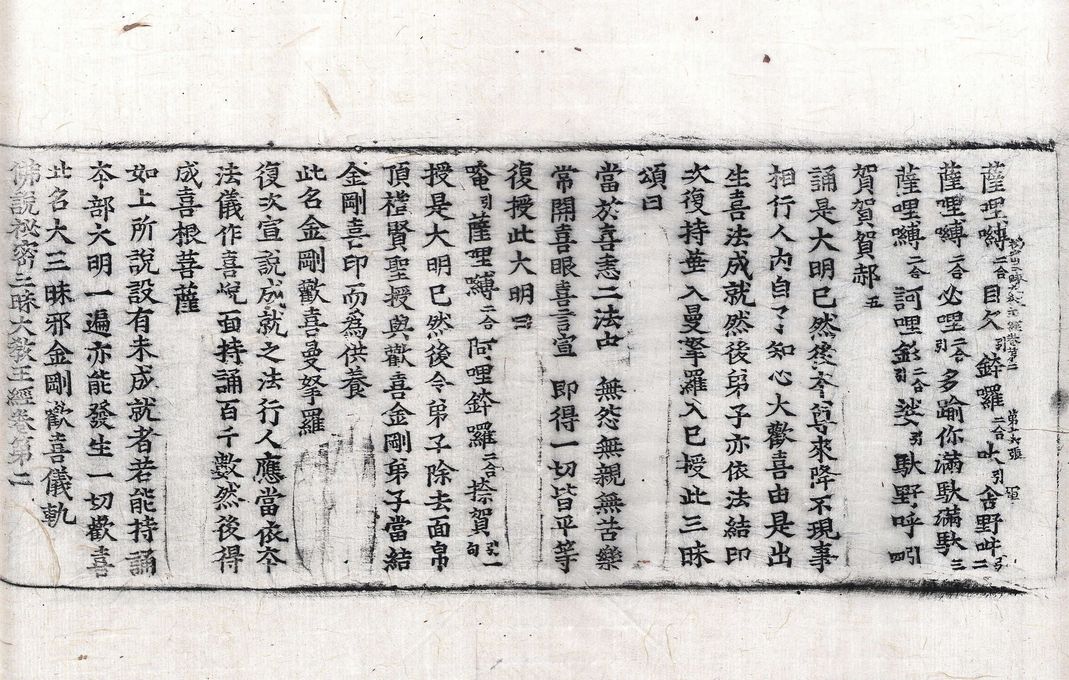 薩哩嚩二合目欠引鋅囉二合吠引舍野吽引二
薩哩嚩二合必哩二合引多踰你滿馱滿馱三
薩哩嚩二合訶哩彰二合引娑引馱野呼引四
賀賀賀郝五
誦是大明已然後本尊來降不現事
相行人內自了知心大歡喜由是出
生喜法成就然後弟子亦依法結印
次復持華入曼拏羅入已授此三昧
頌曰
當於喜恚二法中　無怨無親無苦樂
常開喜眼喜言宣　即得一切皆平等
復授此大明曰
唵引薩哩嚩二合阿哩鋅囉二合捺賀引一句
授是大明已然後令弟子除去面帛
頂禮賢聖授與歡喜金剛弟子當結
金剛喜印而為供養
此名金剛歡喜曼拏羅
復次宣說成就之法行人應當依本
法儀作喜悅面持誦百千數然後得
成喜根菩薩
如上所說設有未成就者若能持誦
本部大明一遍亦能發生一切歡喜
此名大三昧邪金剛歡喜儀軌
佛說祕密三昧大教王經卷第二